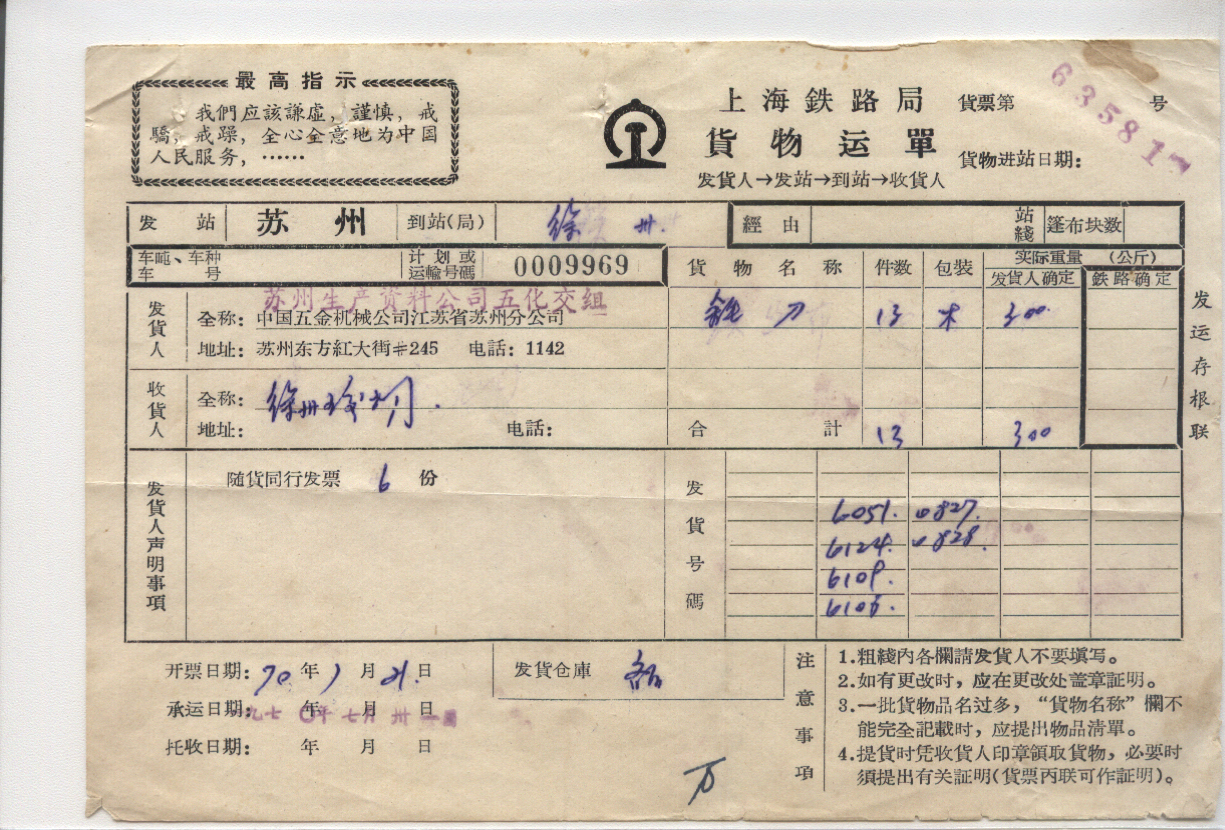 最高指示
我們应該謙虛，謹慎，戒
驕，戒躁，全心全意地为中国
人民服务，……
上海鉄路局
貨物运單
发貨人→发站→到站→收貨人
貨票第 号
635817
貨物进站日期：
发站 苏州 到站(局) 徐州
經由 站綫 篷布块数
车吨、车种
车号
計划或
运輸号碼 0009969
貨物名称 件数 包装 实际重量（公斤）
发貨人确定 鉄路确定
苏州生产資料公司五化交組
发貨人
全称：中国五金机械公司江苏省苏州分公司
地址：苏州东方紅大街#245 电話：1142
刀 13 木 300
收貨人
全称：徐州
地址： 电話：
合計 13 300
发运存根联
发貨人声明事項
随貨同行发票 6 份
发貨号碼
6051. 827.
6124. 828.
6109.
开票日期：70年1月21日
承运日期： 年 月 日
托收日期： 年 月 日
发貨仓庫
注意事項
1.粗綫內各欄請发貨人不要填写。
2.如有更改时，应在更改处盖章証明。
3.一批貨物品名过多，“貨物名称”欄不
能完全記載时，应提出物品清單。
4.提貨时凭收貨人印章領取貨物，必要时
須提出有关証明(貨票丙联可作証明)。